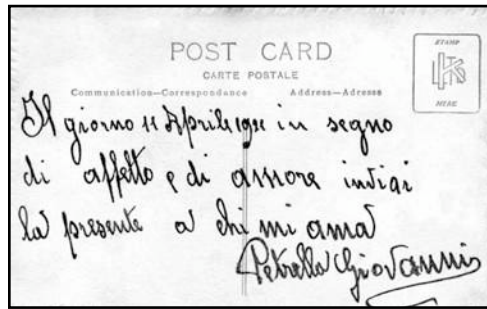 POST CARD
CARTE POSTALE
Communication—Correspondance Address—Adresse
STAMP
HERE
Il giorno 11 Aprile in segno
di affetto e di amore inviai
la presente a chi mi ama
Petrella Giovanni